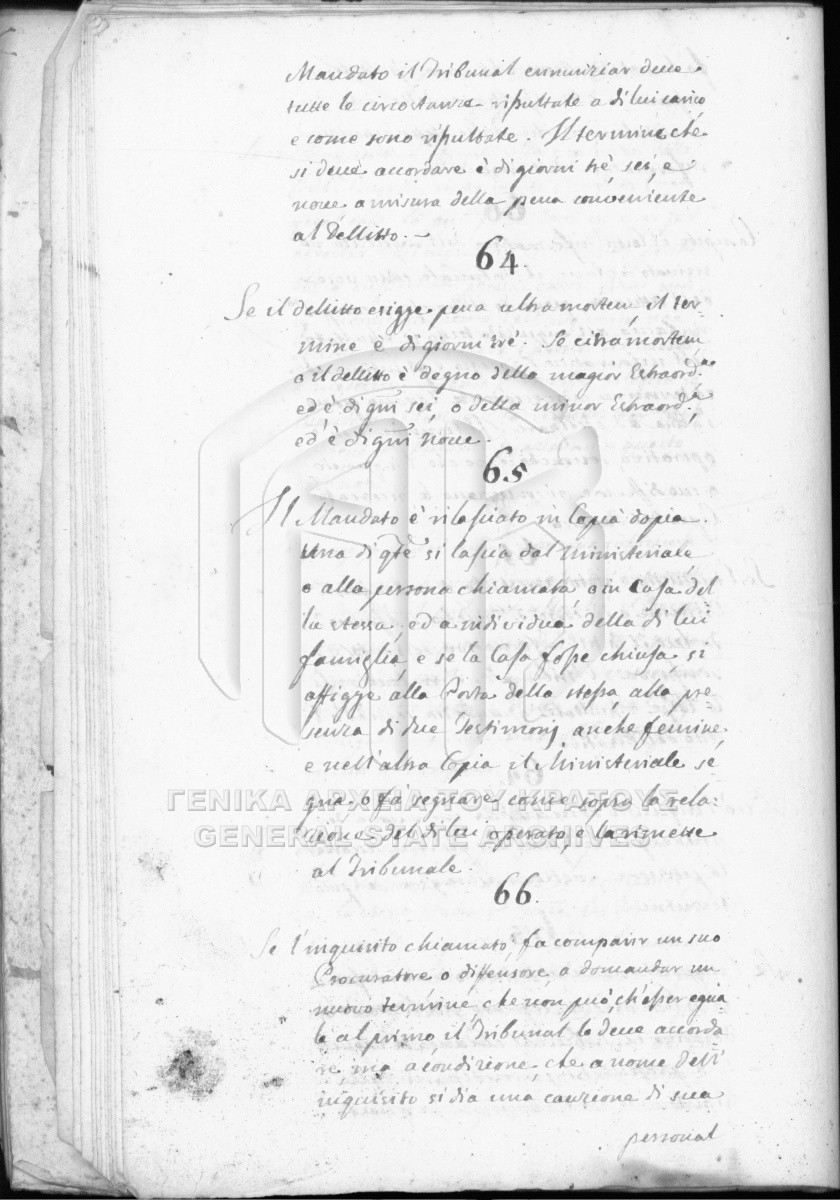 Mandato il Tribunal ennunziar deve
tutte le circostanze risultate a di lui carico
e come sono risultate. Il termine che
si deve accordare è di giorni trè, sei, e
nove a misura della pena conveniente
al Dellitto. —
64.
Se il dellitto esigge pena ultra mortem il ter-
mine è di giorni trè. Se citra mortem
o il dellitto è degno della magior Estraord.ria
ed è di gni sei, o della minor Estraord.ria
ed è di gni nove.
65
Il Mandato è rilasciato in Copia dopia.
Una di qte si lascia dal Ministeriale
o alla persona chiamata, o in Casa del
la stessa, ed a individuo della di lui
famiglia, e se la Casa fosse chiusa, si
affigge alla Porta della stessa alla pre
senza di due Testimonj, anche femine,
e nell'altra Copia il Ministeriale se
gna, o fà segnare come sopra la rela:
zione del di lui operato, e la rimette
al Tribunale.
66.
Se l'inquisito chiamato, fa comparir un suo
Procuratore o diffensore, a domandar un
nuovo termine, che non può ch'esser egua
le al primo il Tribunal lo deve accorda
re, ma a condizione, che a nome dell'
inquisito si dia una cauzione di sua
personal
ΓΕΝΙΚΑ ΑΡΧΕΙΑ ΤΟΥ ΚΡΑΤΟΥΣ
GENERAL STATE ARCHIVES